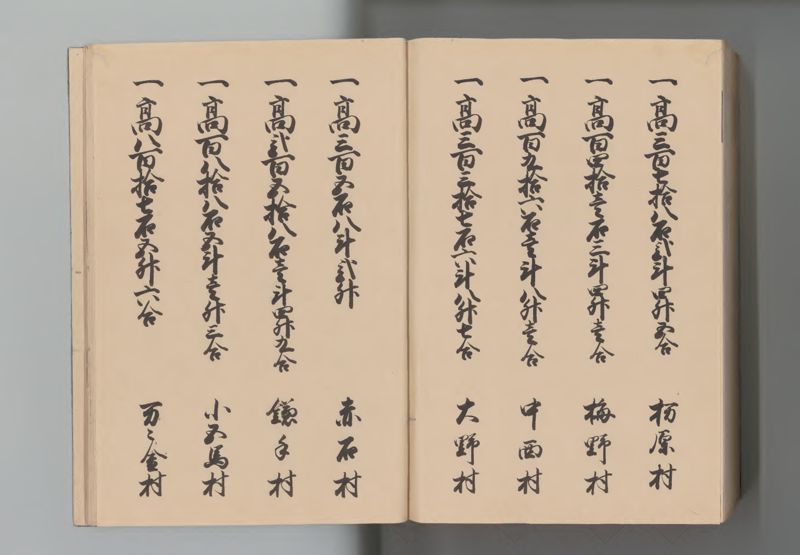 一高三百七拾八石弐斗四升五合 栃原村
一高百四拾壱石三斗四升壱合 梅野村
一高百九拾六石壱斗八升壱合 中西村
一高三百三拾七石六斗八升七合 大野村
一高三百五石八斗弐升 赤石村
一高弐百五拾八石壱斗四升九合 鎌手村
一高百八拾八石五斗壱升三合 小五馬村
一高八百拾七石五升六合 万々金村